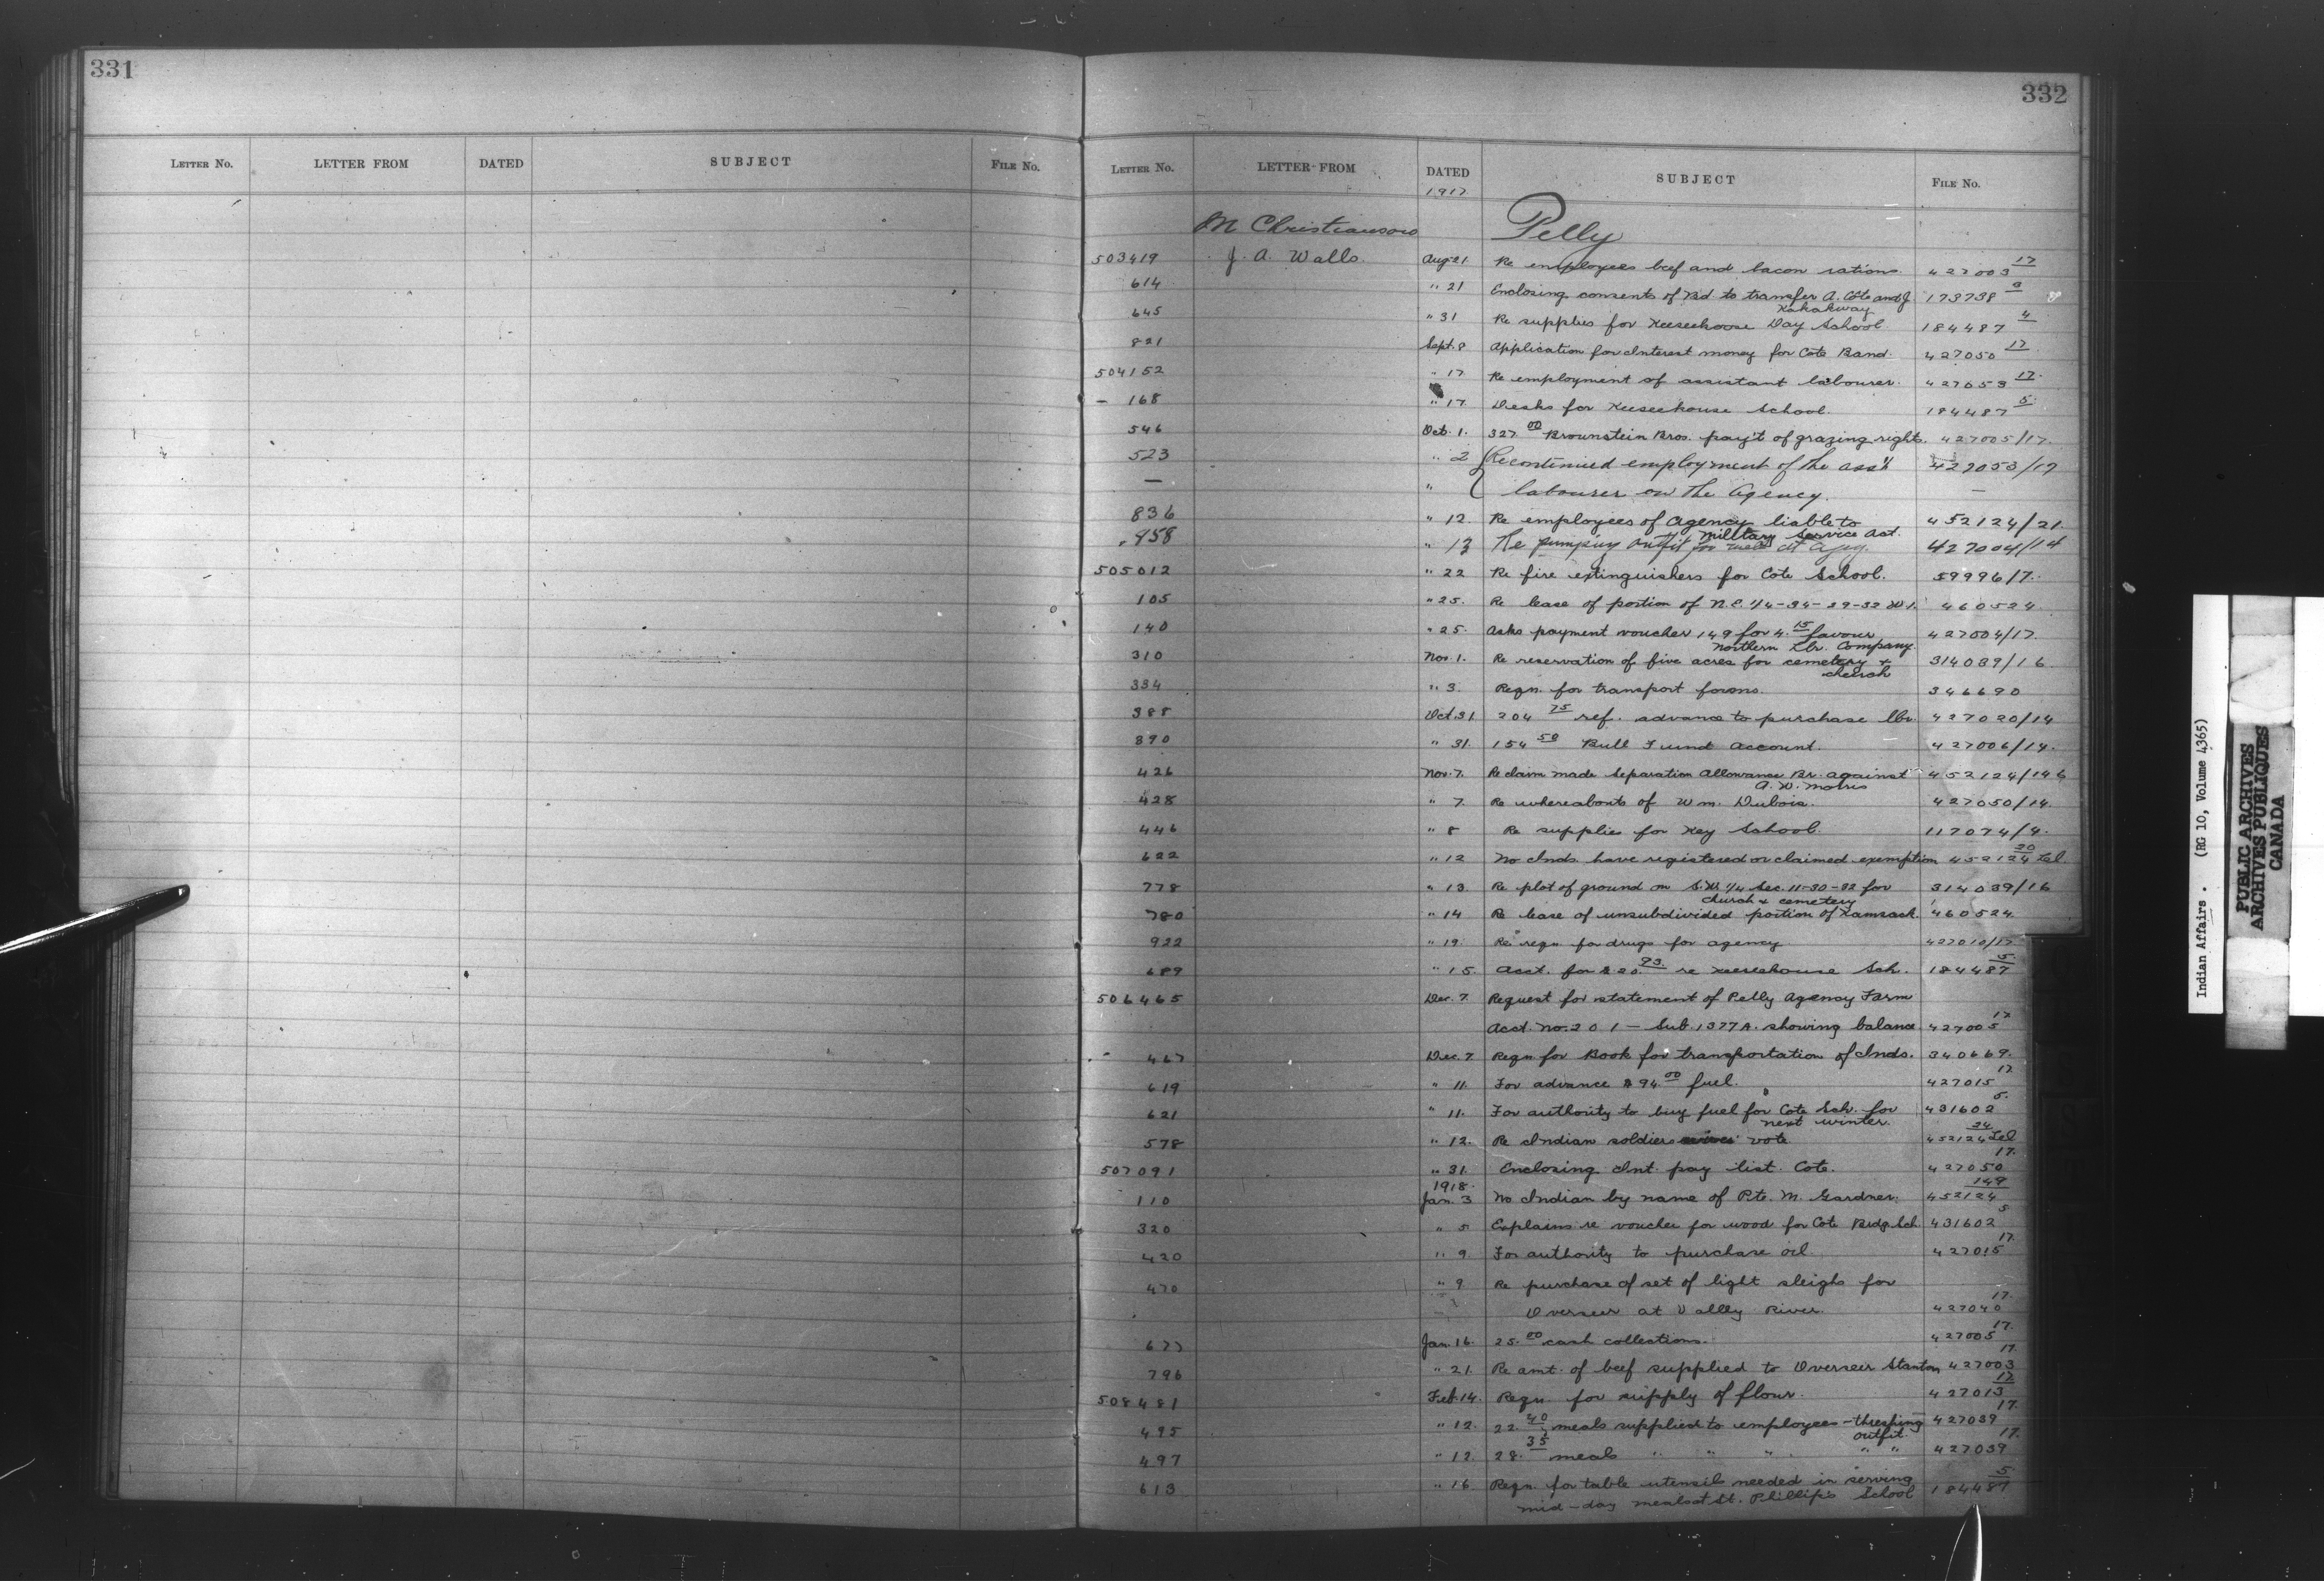 331
332
LETTER NO. LETTER FROM DATED SUBJECT FILE NO.
LETTER NO. LETTER FROM DATED SUBJECT FILE NO.
1917
M Christianson Pelly
503419 J. A. Walls Aug 21 Re employees beef and bacon rations 427003 17
614 " 21 Enclosing consents of Bd. to transfer A. Cote and J. 173738
Kakakway
645 " 31 Re supplies for Keeseekoose Day School. 184487 4
821 Sept. 8 Application for Interest money for Cote Band. 427050 17
504152 " 17 Re employment of assistant labourer. 427053 17.
168 " 17 Desks for Keeseekouse School. 184487 5.
546 Oct. 1. 327.00 Brownstein Bros. pay't of grazing rights. 427005/17.
523 " 2 Re continued employment of the ass't 427053/17
— " labourer on the Agency. —
836 " 12. Re employees of Agency liable to 452124/21.
Military Service Act.
958 " 13 Re pumping outfit for at Agcy. 427004/14
505012 " 22 Re fire extinguishers for Cote School. 59996/7.
105 " 25. Re lease of portion of N.E. 1/4-34-29-32 W1. 460524
140 " 25. Asks payment voucher 149 for 4.15 favour 427004/17.
Northern Lbr. Company.
310 Nov. 1. Re reservation of five acres for cemetery & 314039/16
church
334 " 3. Reqn. for transport forms. 346690
388 Oct. 31. 204 75 ref. advance to purchase lbr. 427020/14
390 " 31. 154 58 Bull Fund Account. 427006/14.
426 Nov. 7. Re claim made Separation Allowance Br. against 452124/146
A. W. Morris
428 " 7. Re whereabouts of Wm. Dubois. 427050/14.
446 " 8 Re supplies for Key School. 117074/4.
622 " 12 No Inds. have registered or claimed exemption 452124 20 Tel
778 " 13. Re plot of ground on S.W. 1/4 Sec. 11-30-32 for 314039/16
church & cemetery
780 " 14 Re lease of unsubdivided portion of Kamsack 460524.
922 " 19. Re reqn for drugs for agency 427010/17
689 " 15. Acct. for $20.93 re Keeseekouse Sch. 184487 5.
506465 Dec. 7. Request for statement of Pelly Agency Farm
Acct. No. 201 — Sub. 1377A. showing balance 427005 17
467 Dec. 7 Reqn for Book for transportation of Inds. 340669.
619 " 11. For advance $94.00 fuel. 427015 17
621 " 11. For authority to buy fuel for Cote Sch. for 431602 5.
next winter.
578 " 12. Re Indian soldiers vote 452124 24 Tel
507091 " 31. Enclosing Int. pay list. Cote. 427050 17.
1918.
110 Jan. 3 No Indian by name of Pte. M. Gardner. 452124 149
320 " 5 Explains re voucher for wood for Cote Brdg. Sch. 431602 5
420 " 9. For authority to purchase oil. 427015 17.
470 " 9. Re purchase of set of light sleighs for
Overseer at Vallly River. 427040 17.
677 Jan. 16. 25.00 cash collections. 427005 17.
796 " 21. Re amt. of beef supplied to Overseer Stanton 427003 17.
508481 Feb. 14. Reqn. for supply of flour. 427013 17
495 " 12. 22.40 meals supplied to employees - threshing 427039 17.
outfit.
497 " 12. 28.35 meals " " " " " 427039 17.
613 " 16 Reqn. for table utensils needed in serving 184487 5
mid-day meals at St. Phillip's School
Indian Affairs. (RG 10, Volume 4365)
PUBLIC ARCHIVES
ARCHIVES PUBLIQUES
CANADA